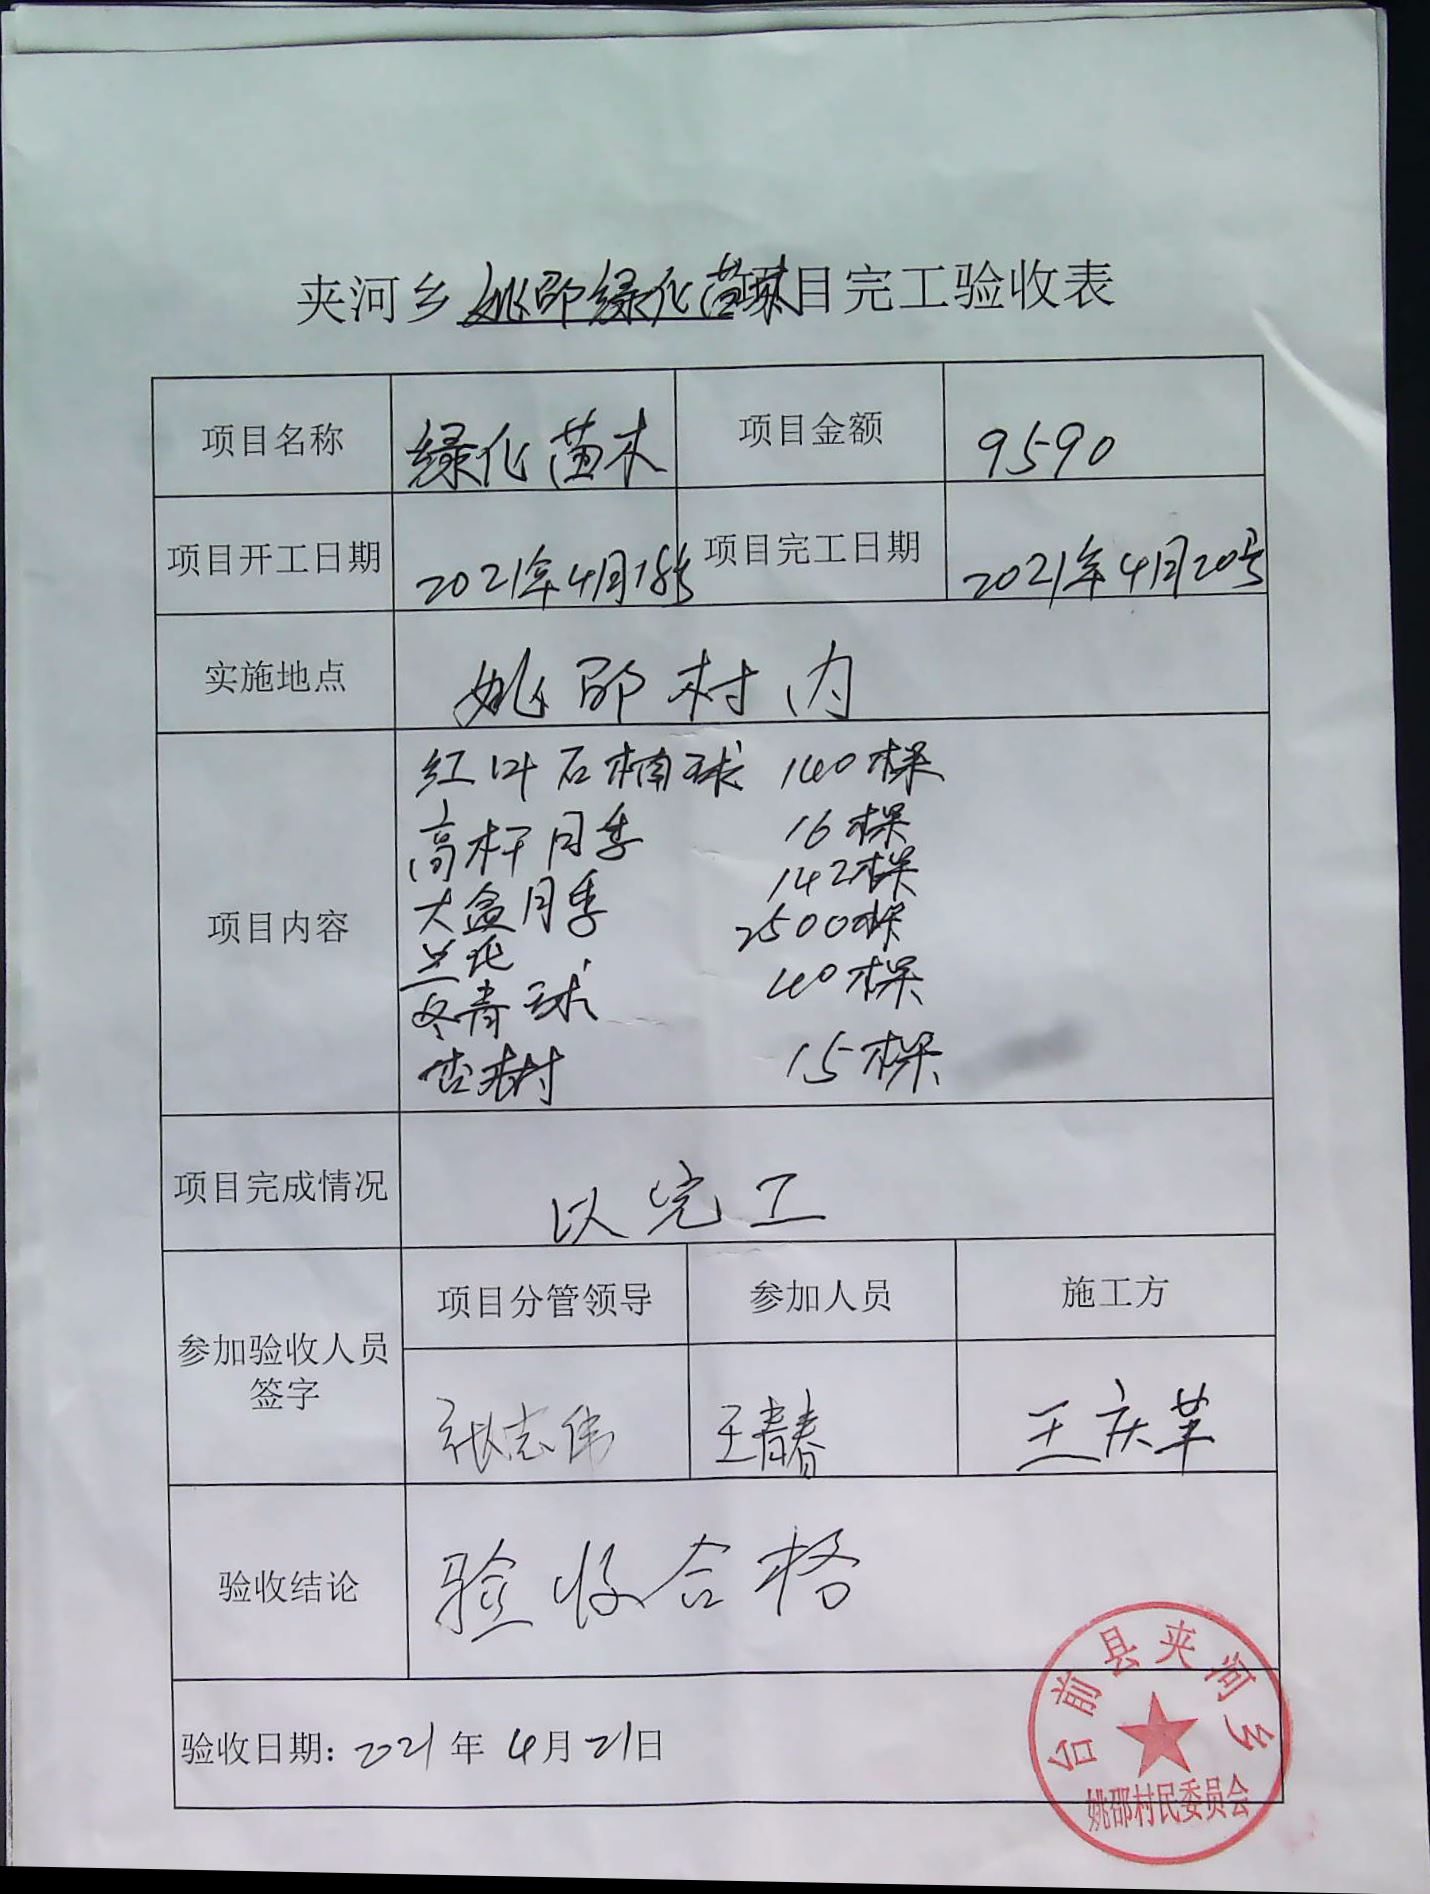 夹河乡姚邵绿化苗木项目完工验收表
项目名称 绿化苗木 项目金额 9590
项目开工日期 2021年4月18号 项目完工日期 2021年4月20号
实施地点 姚邵村内
项目内容
红叶石楠球 140棵
高杆月季 16棵
大盆月季 142棵
兰花 2500棵
冬青球 40棵
杏树 15棵
项目完成情况 以完工
参加验收人员
签字
项目分管领导 参加人员 施工方
张志伟 王青春 王庆革
验收结论 验收合格
验收日期：2021年4月21日
台前县夹河乡
姚邵村民委员会